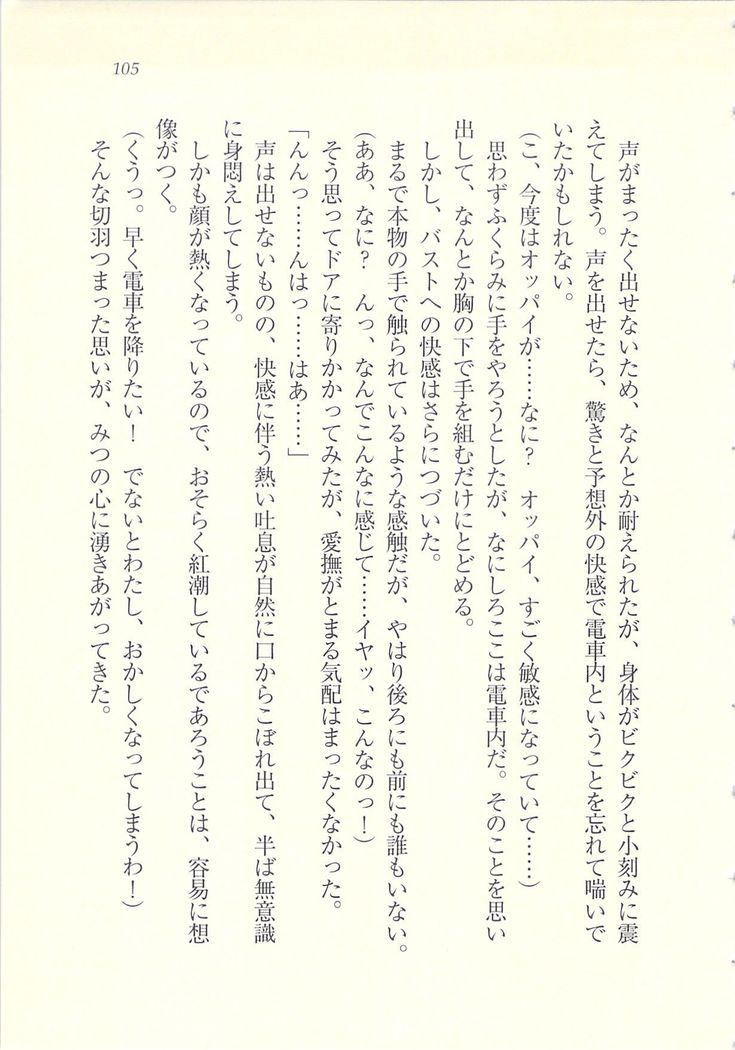 105
声がまったく出せないため、なんとか耐えられたが、身体がビクビクと小刻みに震
えてしまう。声を出せたら、驚きと予想外の快感で電車内ということを忘れて喘いで
いたかもしれない。
（こ、今度はオッパイが……なに？　オッパイ、すごく敏感になっていて……）
思わずふくらみに手をやろうとしたが、なにしろここは電車内だ。そのことを思い
出して、なんとか胸の下で手を組むだけにとどめる。
しかし、バストへの快感はさらにつづいた。
まるで本物の手で触られているような感触だが、やはり後ろにも前にも誰もいない。
（ああ、なに？　んっ、なんでこんなに感じて……イヤッ、こんなのっ！）
そう思ってドアに寄りかかってみたが、愛撫がとまる気配はまったくなかった。
「んんっ……んはっ……はあ……」
声は出せないものの、快感に伴う熱い吐息が自然に口からこぼれ出て、半ば無意識
に身悶えしてしまう。
しかも顔が熱くなっているので、おそらく紅潮しているであろうことは、容易に想
像がつく。
（くうっ。早く電車を降りたい！　でないとわたし、おかしくなってしまうわ！）
そんな切羽つまった思いが、みつの心に湧きあがってきた。